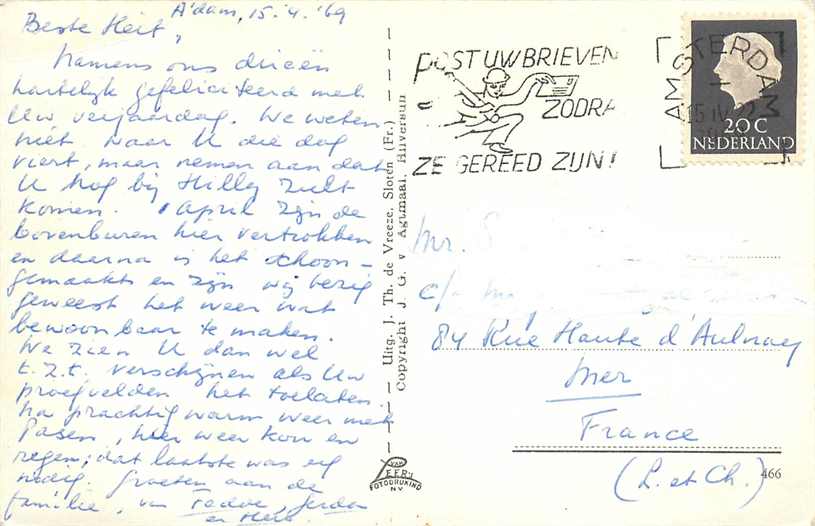 A'dam, 15.4.'69
Beste Heit,
Namens ons drieën
hartelijk gefeliciteerd met
Uw verjaardag. We weten
niet waar U die dag
viert, maar nemen aan dat
U nog bij Hilly zult
komen. 1 April zijn de
bovenburen hier vertrokken
en daarna is het schoon-
gemaakt en zijn wij bezig
geweest het weer wat
bewoonbaar te maken.
We zien U dan wel
t.z.t. verschijnen als Uw
proefvelden het toelaten.
Na prachtig warm weer met
Pasen, hier weer kou en
regen; dat laatste was erg
nodig. Groeten aan de
familie, van
en
Uitg. J. Th. de Vreeze, Sloten (Fr.)
Copyright J. G. v Agtmaal, Hilversum
VAN LEER'S
FOTODRUKIND
N.V.
POST UW BRIEVEN
ZODRA
ZE GEREED ZIJN!
AMSTERDAM
15 IV 22
20 C
NEDERLAND
Mr.
c/o
84 Rue Haute d'Aulnay
Mer
France
(L. et Ch.)
466